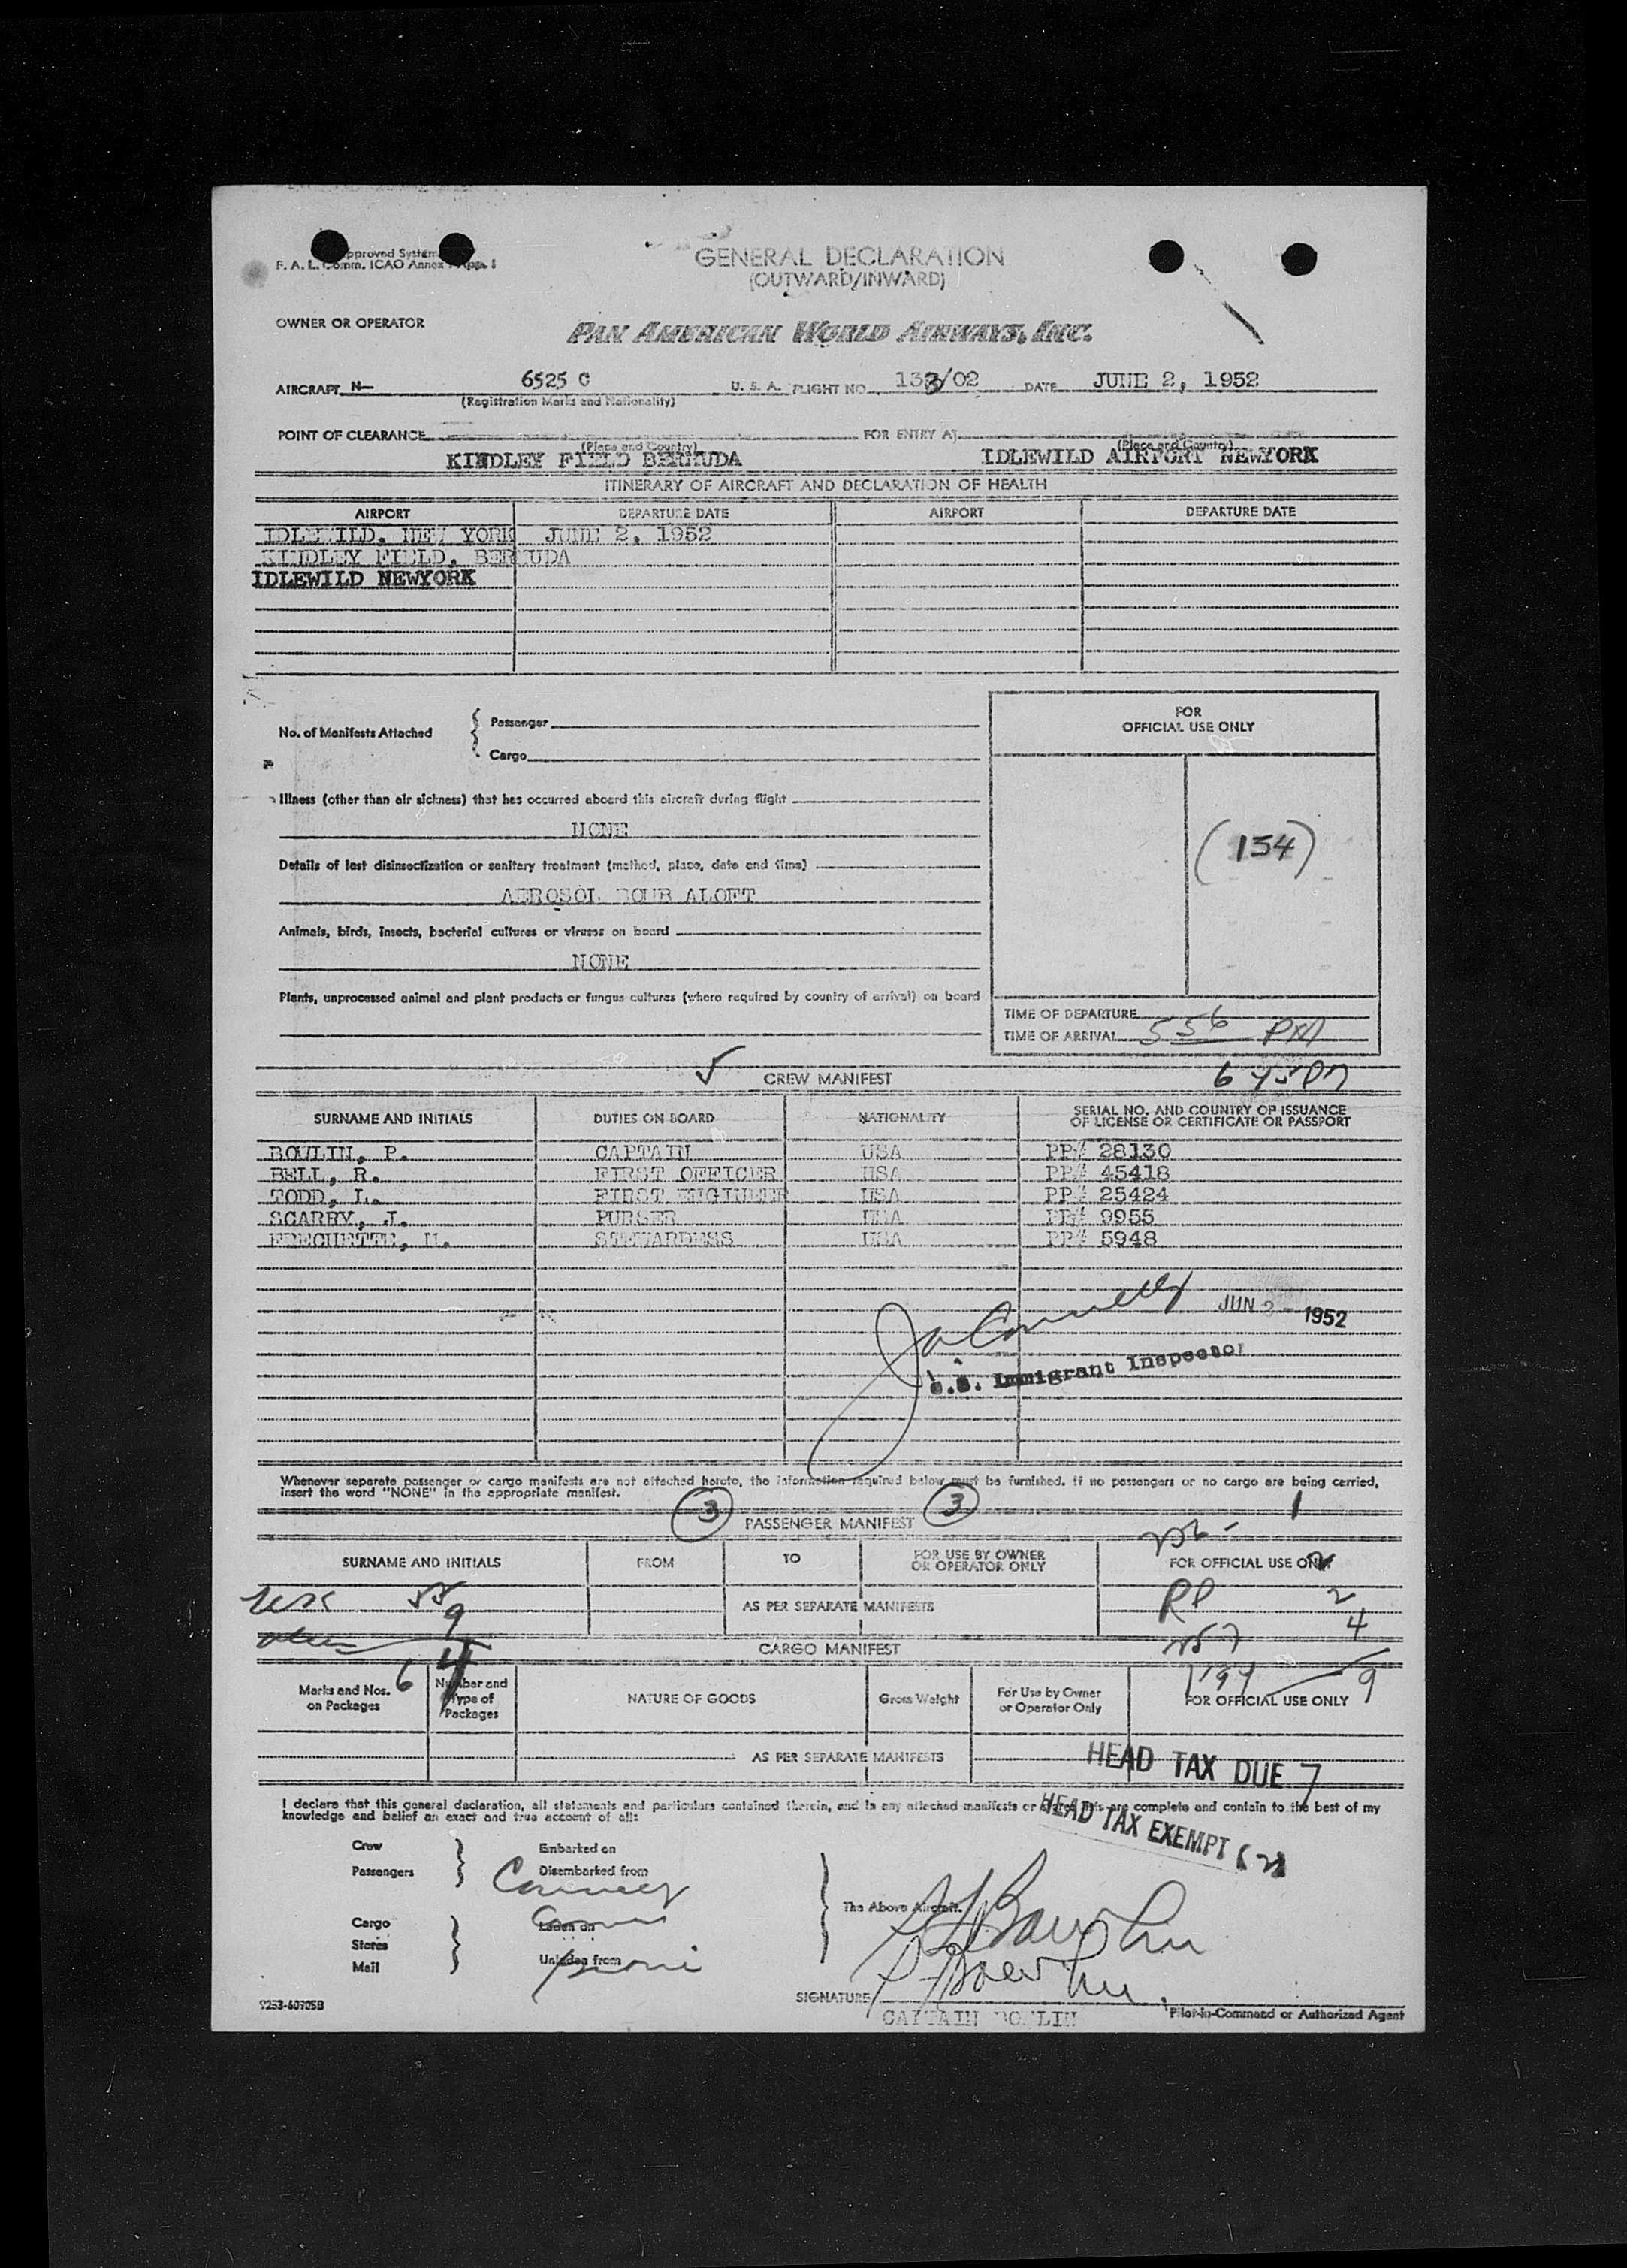 Approved System
F. A. L. Comm. ICAO Annex
GENERAL DECLARATION
(OUTWARD/INWARD)
OWNER OR OPERATOR
PAN AMERICAN WORLD AIRWAYS, INC.
AIRCRAFT N— 6525 C U. S. A. FLIGHT NO. 133/02 DATE JUNE 2, 1952
(Registration Marks and Nationality)
POINT OF CLEARANCE FOR ENTRY AT
(Place and Country) (Place and Country)
KINDLEY FIELD BERMUDA IDLEWILD AIRPORT NEWYORK
ITINERARY OF AIRCRAFT AND DECLARATION OF HEALTH
AIRPORT DEPARTURE DATE AIRPORT DEPARTURE DATE
IDLEWILD, NEW YORK JUNE 2, 1952
KINDLEY FIELD, BERMUDA
IDLEWILD NEWYORK
FOR
OFFICIAL USE ONLY
No. of Manifests Attached { Passenger
Cargo
Illness (other than air sickness) that has occurred aboard this aircraft during flight
NONE
(154)
Details of last disinsectization or sanitary treatment (method, place, date and time)
AEROSOL BOMB ALOFT
Animals, birds, insects, bacterial cultures or viruses on board
NONE
Plants, unprocessed animal and plant products or fungus cultures (where required by country of arrival) on board
TIME OF DEPARTURE
TIME OF ARRIVAL 556 PM
6 45 PM
CREW MANIFEST
SURNAME AND INITIALS DUTIES ON BOARD NATIONALITY SERIAL NO. AND COUNTRY OF ISSUANCE
OF LICENSE OR CERTIFICATE OR PASSPORT
BOWLIN, P. CAPTAIN USA PP# 28130
BELL, R. FIRST OFFICER USA PP# 45418
TODD, L. FIRST ENGINEER USA PP# 25424
SCARRY, J. PURSER USA PP# 9955
FRECHETTE, M. STEWARDESS USA PP# 5948
JUN 2 - 1952
U.S. Immigrant Inspector
Whenever separate passenger or cargo manifests are not attached hereto, the information required below must be furnished. If no passengers or no cargo are being carried,
insert the word "NONE" in the appropriate manifest.
3 PASSENGER MANIFEST 3 1
SURNAME AND INITIALS FROM TO FOR USE BY OWNER
OR OPERATOR ONLY FOR OFFICIAL USE ONLY
55 RP 2
9 AS PER SEPARATE MANIFESTS 4
CARGO MANIFEST
64 9
Marks and Nos.
on Packages Number and
Type of
Packages NATURE OF GOODS Gross Weight For Use by Owner
or Operator Only FOR OFFICIAL USE ONLY
AS PER SEPARATE MANIFESTS
HEAD TAX DUE 7
I declare that this general declaration, all statements and particulars contained therein, and in any attached manifests or crew lists are complete and contain to the best of my
knowledge and belief an exact and true account of all:
HEAD TAX EXEMPT (2)
Crew Embarked on
Passengers Disembarked from
The Above Aircraft.
Cargo Laden on
Stores
Mail Unladen from
SIGNATURE P Bowlin
9253-60705B CAPTAIN BOWLIN Pilot-in-Command or Authorized Agent